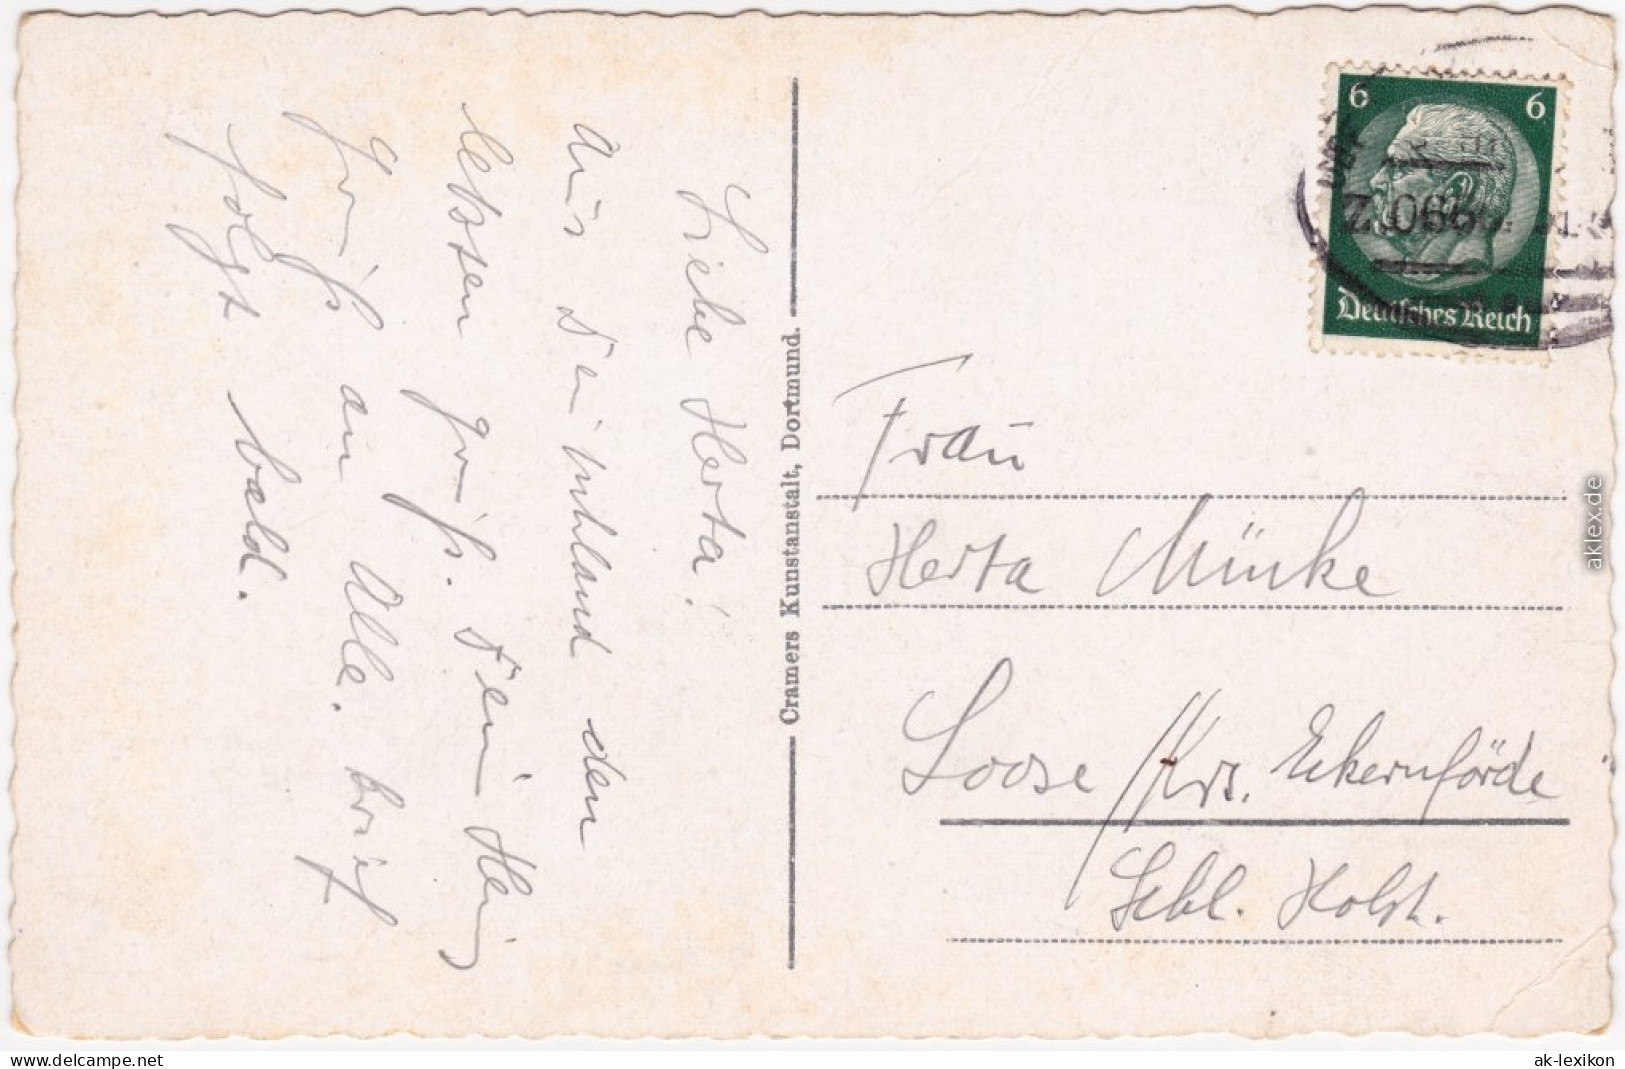 Liebe Herta!
Aus Steinuhland den
letzten Gruß. Dein Heinz
Gruß an Alle. Brief
folgt bald.
Cramers Kunstanstalt, Dortmund.
6 6
Deutsches Reich
Z.066
Frau
Herta Münke
Loose / Krs. Eckernförde
Schl. Holst.
aklex.de
www.delcampe.net
ak-lexikon